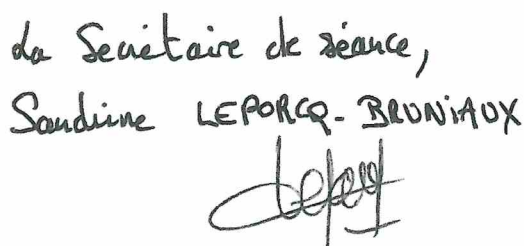 La Secrétaire de séance,
Sandrine LEPORCQ-BRUNIAUX